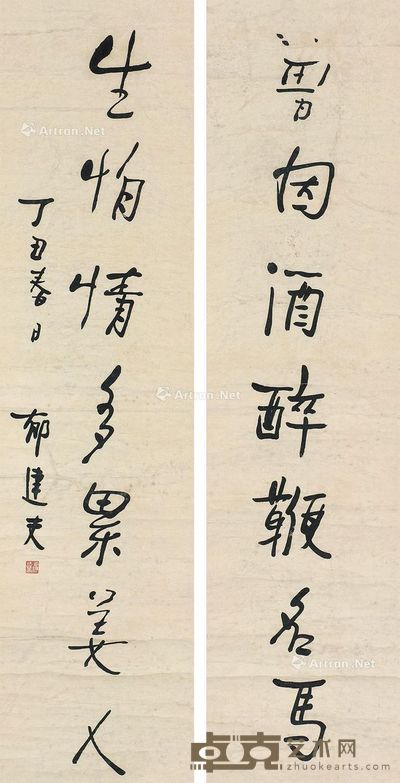 曾因酒醉鞭名馬
生怕情多累美人
丁丑春日 郁達夫
Artron.Net
Artron.Net
Artron.Net
卓克艺术网
zhuokearts.com